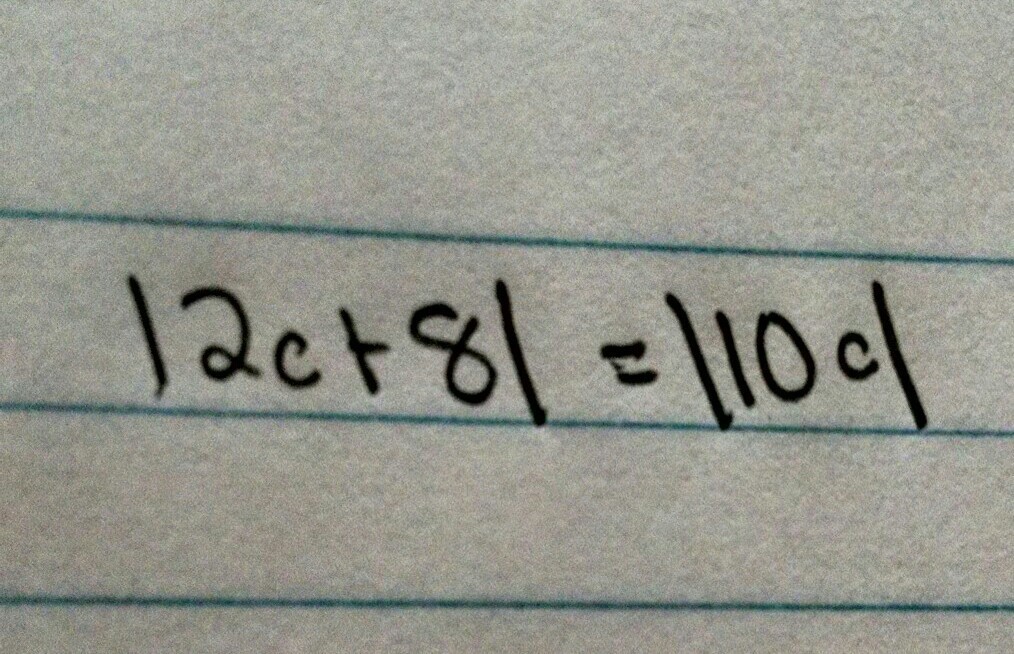 |2c+8| = |10c|